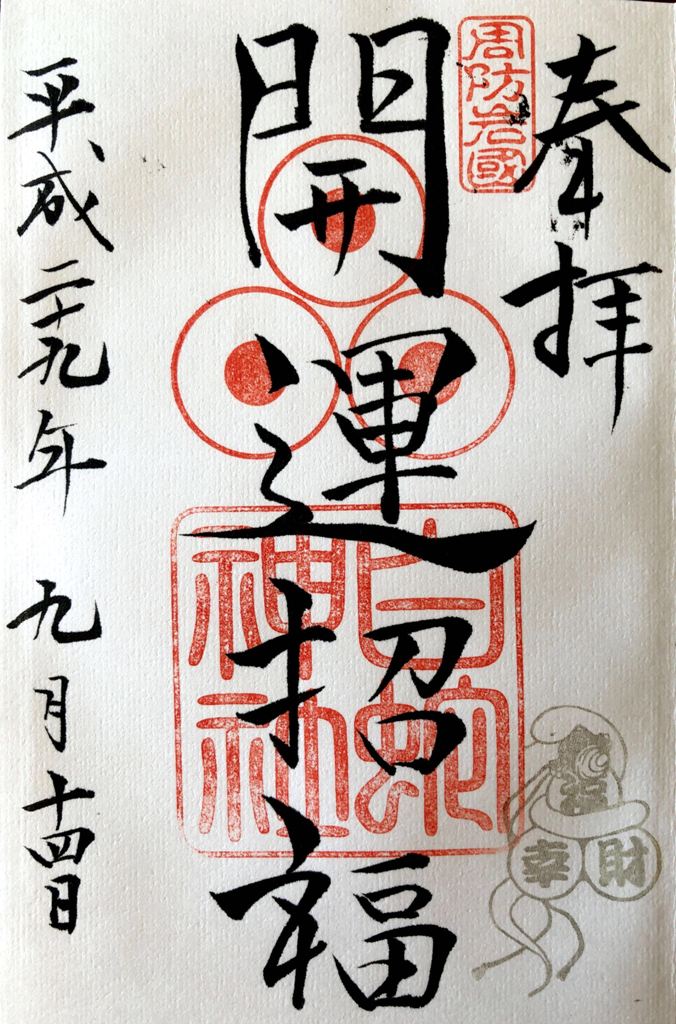 奉拝
周防岩國
開運招福
白蛇神社
平成二十九年 九月十四日
福
幸
財